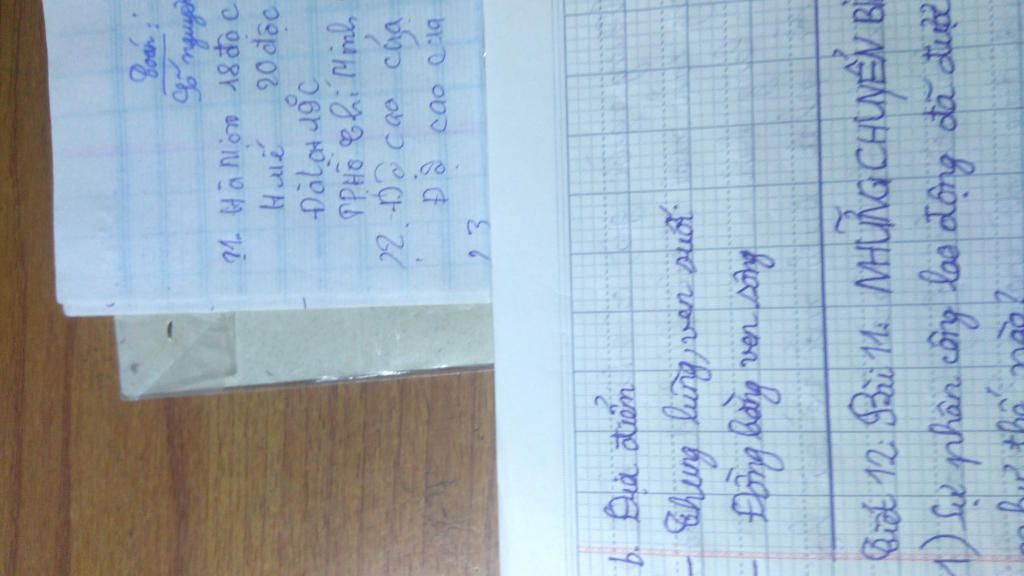 Toán:
Số nguyê
21. Hà Nội 18 độ C
Huế 20 độ C
Đà Lạt 19°C
TP Hồ Chí Minh
22. - Độ cao của
Độ cao của
23
b. Địa điểm
- Thung lũng, ven suối.
- Đồng bằng ven sông
Tiết 12: Bài 11. NHỮNG CHUYỂN BI
1) Sự phân công lao động đã được
như thế nào?